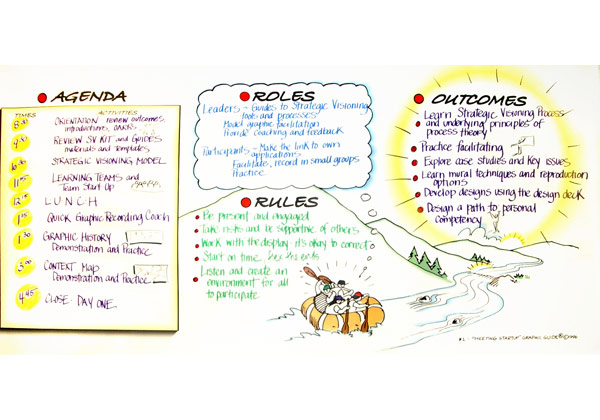 AGENDA
TIMES ACTIVITIES
ORIENTATION review outcomes
introductions, oarrs
REVIEW SV KIT and GUIDES
materials and templates
STRATEGIC VISIONING MODEL
LEARNING TEAMS and
Team Start Up
LUNCH
QUICK Graphic Recording Coach
1:30 GRAPHIC HISTORY
Demonstration and Practice
3:00 CONTEXT MAP
Demonstration and Practice
4:45 CLOSE DAY ONE
ROLES
Leaders - Guides to Strategic Visioning
tools and processes
Model graphic facilitation
Provide coaching and feedback
Participants - Make the link to own
applications
Facilitate, record in small groups
Practice
RULES
Be present and engaged
Take risks and be supportive of others
Work with the display: it's okay to correct
Start on time
Listen and create an
environment for all
to participate
OUTCOMES
Learn Strategic Visioning Process
and underlying principles of
process theory
Practice facilitating
Explore case studies and key issues
Learn mural techniques and reproduction
options
Develop designs using the design deck
Design a path to personal
competency
#1 - "MEETING STARTUP" GRAPHIC GUIDE